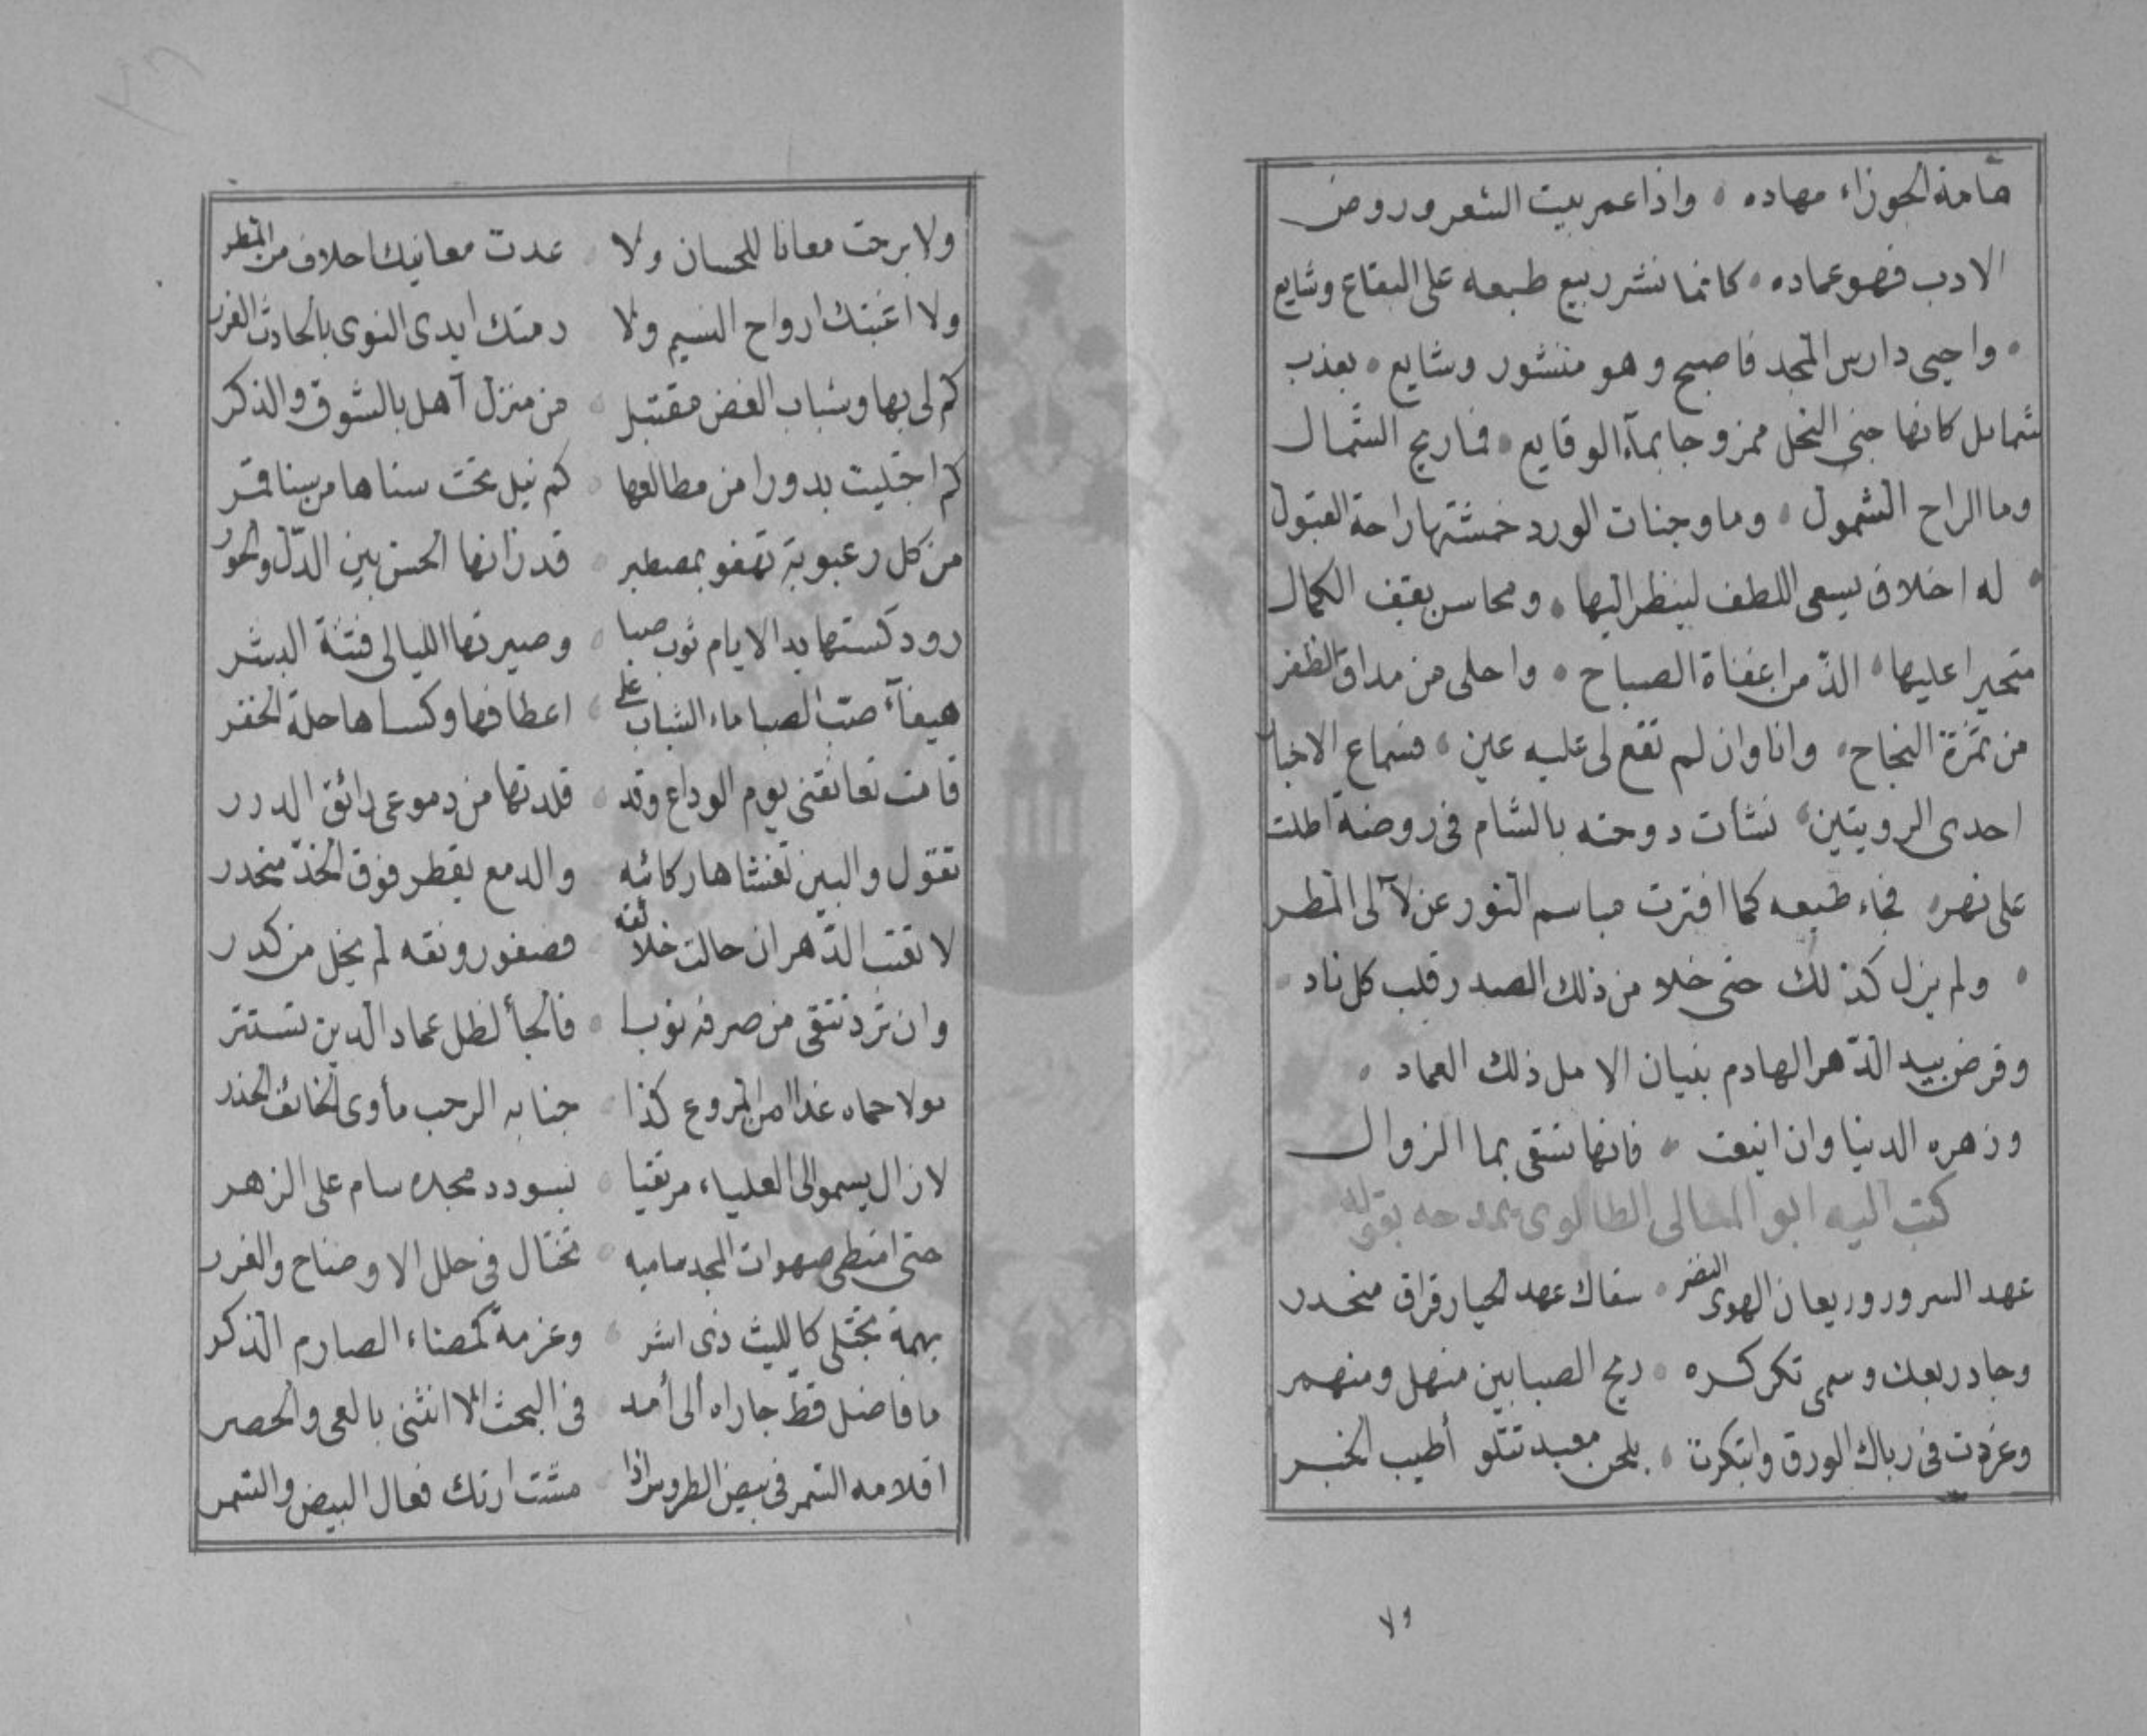 هامة الجوزاء مهاده • واذا عمر بيت الشعر وروض
الادب فهو عماده • كانما نشر ربيع طبعه على البقاع وشايع
• واحيى دارس المجد فاصبح وهو منشور وشايع • بعذب
شمايل كانها جنى النحل ممزوجا بمآء الوقايع • فما ريح الشمال
وما الراح الشمول • وما وجنات الورد خمشتها راحة القبول
• له اخلاق يسعى اللطف لينظر اليها • ومحاسن يقف الكمال
متحيرا عليها • الذّ من اغفاة الصباح • واحلى من مذاق الظفر
من ثمرة النجاح • وانا وان لم تقع لى عليه عين • فسماع الاخبار
احدى الرويتين • نشأت دوحته بالشام فى روضة اطلت
على نهر • فجاء طبعه كما افترت مباسم النور عن لآلى المطر
• ولم يزل كذلك حتى خلا من ذلك الصدر قلب كل ناد •
وقرض بيد الدّهر الهادم بنيان الامل ذلك العماد •
وزهره الدنيا وان اينعت • فانها تسقى بما الزوال
كتب اليه ابو المعالى الطالوى يمدحه بقوله
عهد السرور وريعان الهوى النضر • سقاك عهد الحيا رقراق منحدر
وجاد ربعك وسمى تكركره • ريح الصبا بين منهل ومنهمر
وغردت فى رباك الورق وابتكرت • بلحن معبد تتلو أطيب الخبر
ولا
ولا برحت مغانا للحسان ولا • عدت معانيك احلاف من المطر
ولا اغبتك ارواح النسيم ولا • رمتك ايدى النوى بالحادث الغرر
كم لى بها وشباب الغض مقتبل • من منزل آهل بالشوق والذكر
كم اجتليت بدورا من مطالعها • كم نيل تحت سناها من سنا قمر
من كل رعبوبة تهفو بمصطبر • قد زانها الحسن بين الدّل والحور
رود كستها يد الايام ثوب صبا • وصيرتها الليالى فتنة البشر
هيفآء صبّ الصبا ماء الشباب على • اعطافها وكساها حلة الخفر
قامت تعانقنى يوم الوداع وقد • قلدتها من دموعى رائق الدرر
تقول والبين تغشاها ركائبه • والدمع يقطر فوق الخدّ منحدر
لا تعتب الدّهر ان حالت خلائقه • فصفو رونقه لم يخل من كدر
وان ترد تتقى من صرفه نوبا • فالجأ لظل عماد الدين تستتر
مولا حماه غدا امن المروع كذا • جنابه الرحب مأوى الخائف الحذر
لازال يسمو الى العلياء مرتقيا • بسودد مجده سام على الزهر
حتى امتطى صهوات المجد ساميه • تختال فى حلل الاوضاح والغرر
بهمة تجتلى كالليث ذى اشر • وعزمة كمضاء الصارم الذكر
ما فاضل قطّ جاراه ألى أمد • فى البحث الا انثنى بالعى والحصر
اقلامه السّمر فى بيض الطروس اذا • مشت ارتك فعال البيض والسّمر